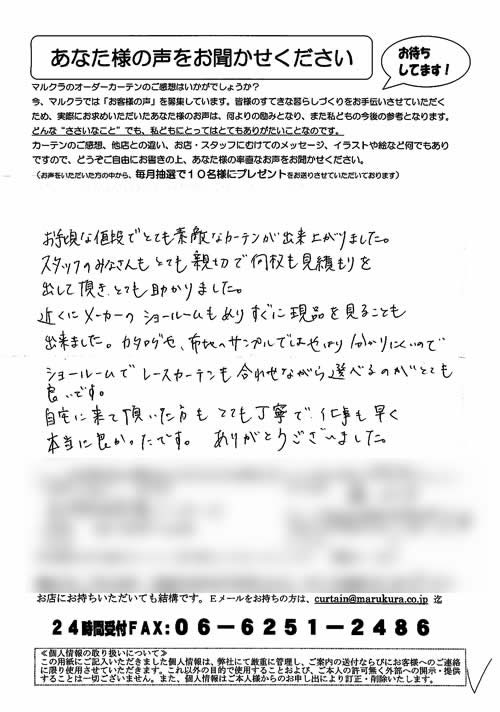 あなた様の声をお聞かせください
お待ち
してます!
マルクラのオーダーカーテンのご感想はいかがでしょうか?
今、マルクラでは「お客様の声」を募集しています。皆様のすてきな暮らしづくりをお手伝いさせていただく
ため、実際にお求めいただいたあなた様のお声は、何よりの励みとなり、また私どもの今後の参考となります。
どんな“ささいなこと”でも、私どもにとってはとてもありがたいことなのです。
カーテンのご感想、他店との違い、お店・スタッフにむけてのメッセージ、イラストや絵など何でもあり
ですので、どうぞご自由にお書きの上、あなた様の率直なお声をお聞かせください。
(お声をいただいた方の中から、毎月抽選で10名様にプレゼントをお送りさせていただいております)
お手頃な値段でとても素敵なカーテンが出来上がりました。
スタッフのみなさんもとても親切で何枚も見積もりを
出して頂き、とても助かりました。
近くにメーカーのショールームもありすぐに現品を見ることも
出来ました。カタログや、布地のサンプルではやはり分かりにくいので
ショールームでレースカーテンも合わせながら選べるのがとても
良いです。
自宅に来て頂いた方もとても丁寧で仕事も早く
本当に良かったです。ありがとうございました。
お店にお持ちいただいても結構です。Eメールをお持ちの方は、curtain@marukura.co.jp 迄
24時間受付FAX:06-6251-2486
≪個人情報の取り扱いについて≫
この用紙にご記入いただきました個人情報は、弊社にて厳重に管理し、ご案内の送付ならびにお客様へのご連絡
に限り使用させていただきます。これ以外の目的で使用することおよび、ご本人の許可無く外部への開示・提供
することは一切ございません。また、個人情報はご本人様からのお申し出により訂正・削除いたします。